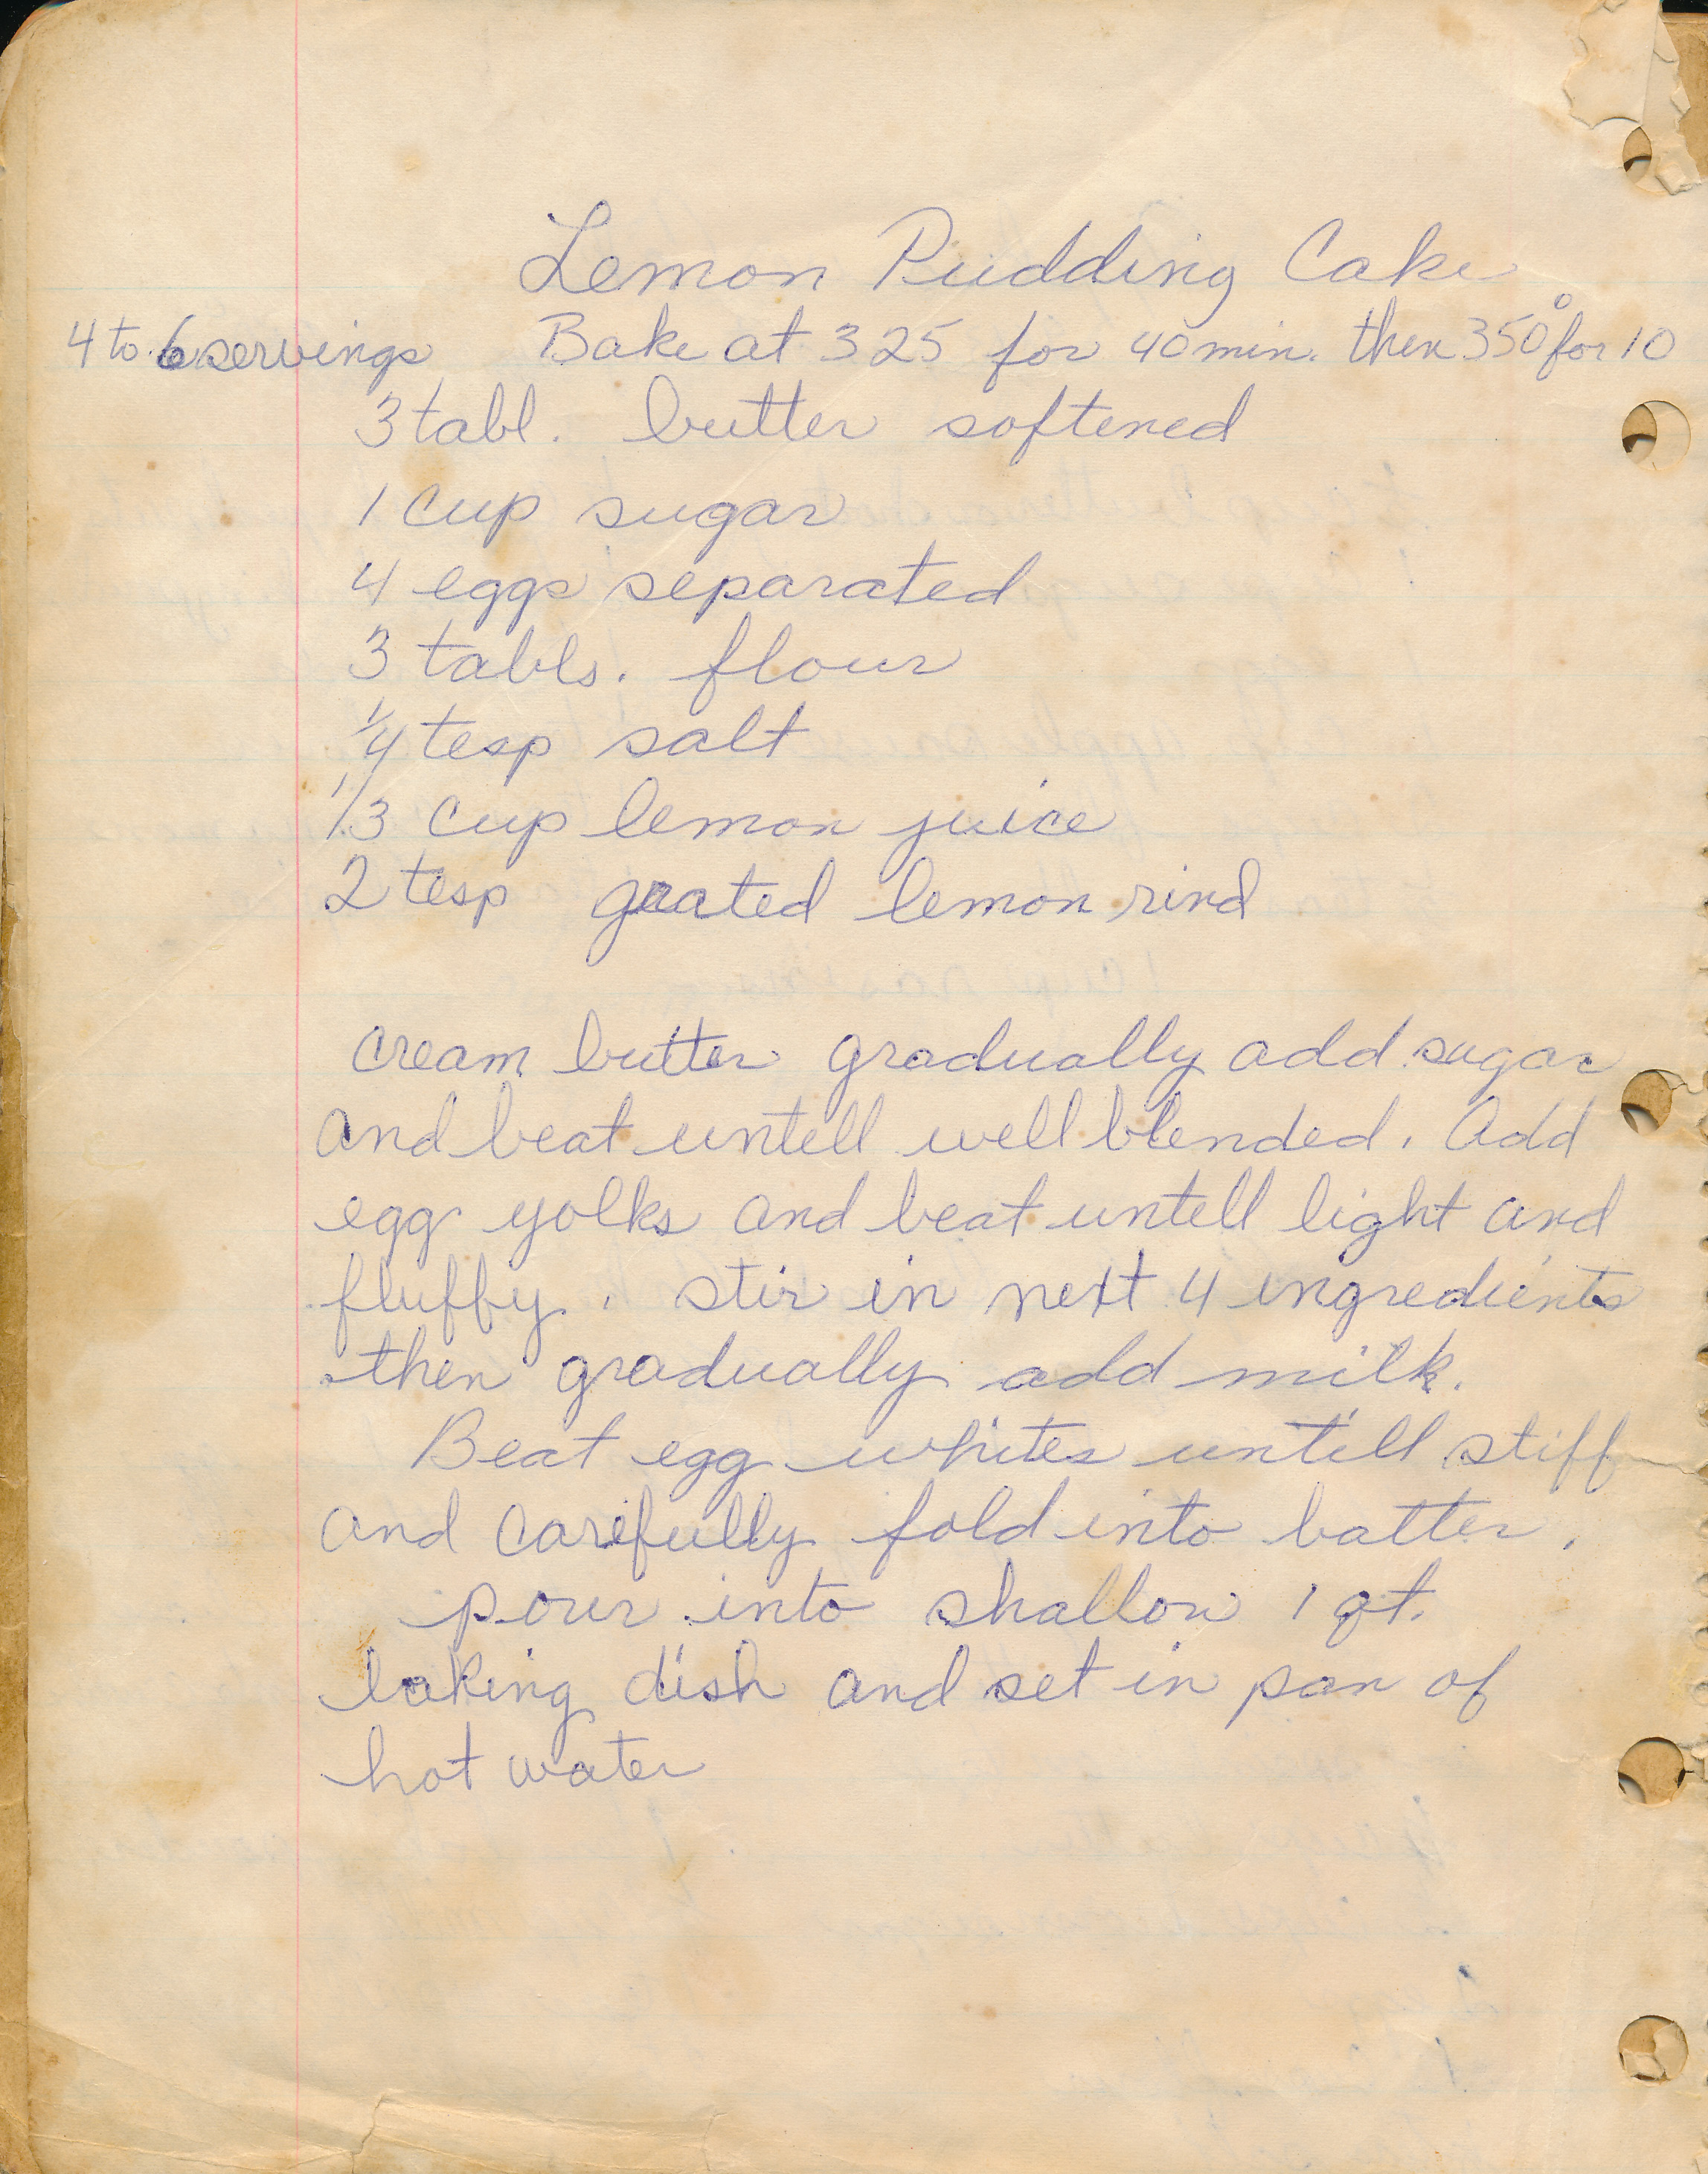 Lemon Pudding Cake
4 to 6 servings Bake at 325 for 40 min. then 350° for 10
3 tabl. butter softened
1 cup sugar
4 eggs separated
3 tabls. flour
1/4 tesp salt
1/3 cup lemon juice
2 tesp grated lemon rind
cream butter gradually add sugar
and beat untill well blended. Add
egg yolks and beat untill light and
fluffy. stir in next 4 ingredients
then gradually add milk.
Beat egg whites untill stiff
and carefully fold into batter.
pour into shallow 1 qt.
baking dish and set in pan of
hot water